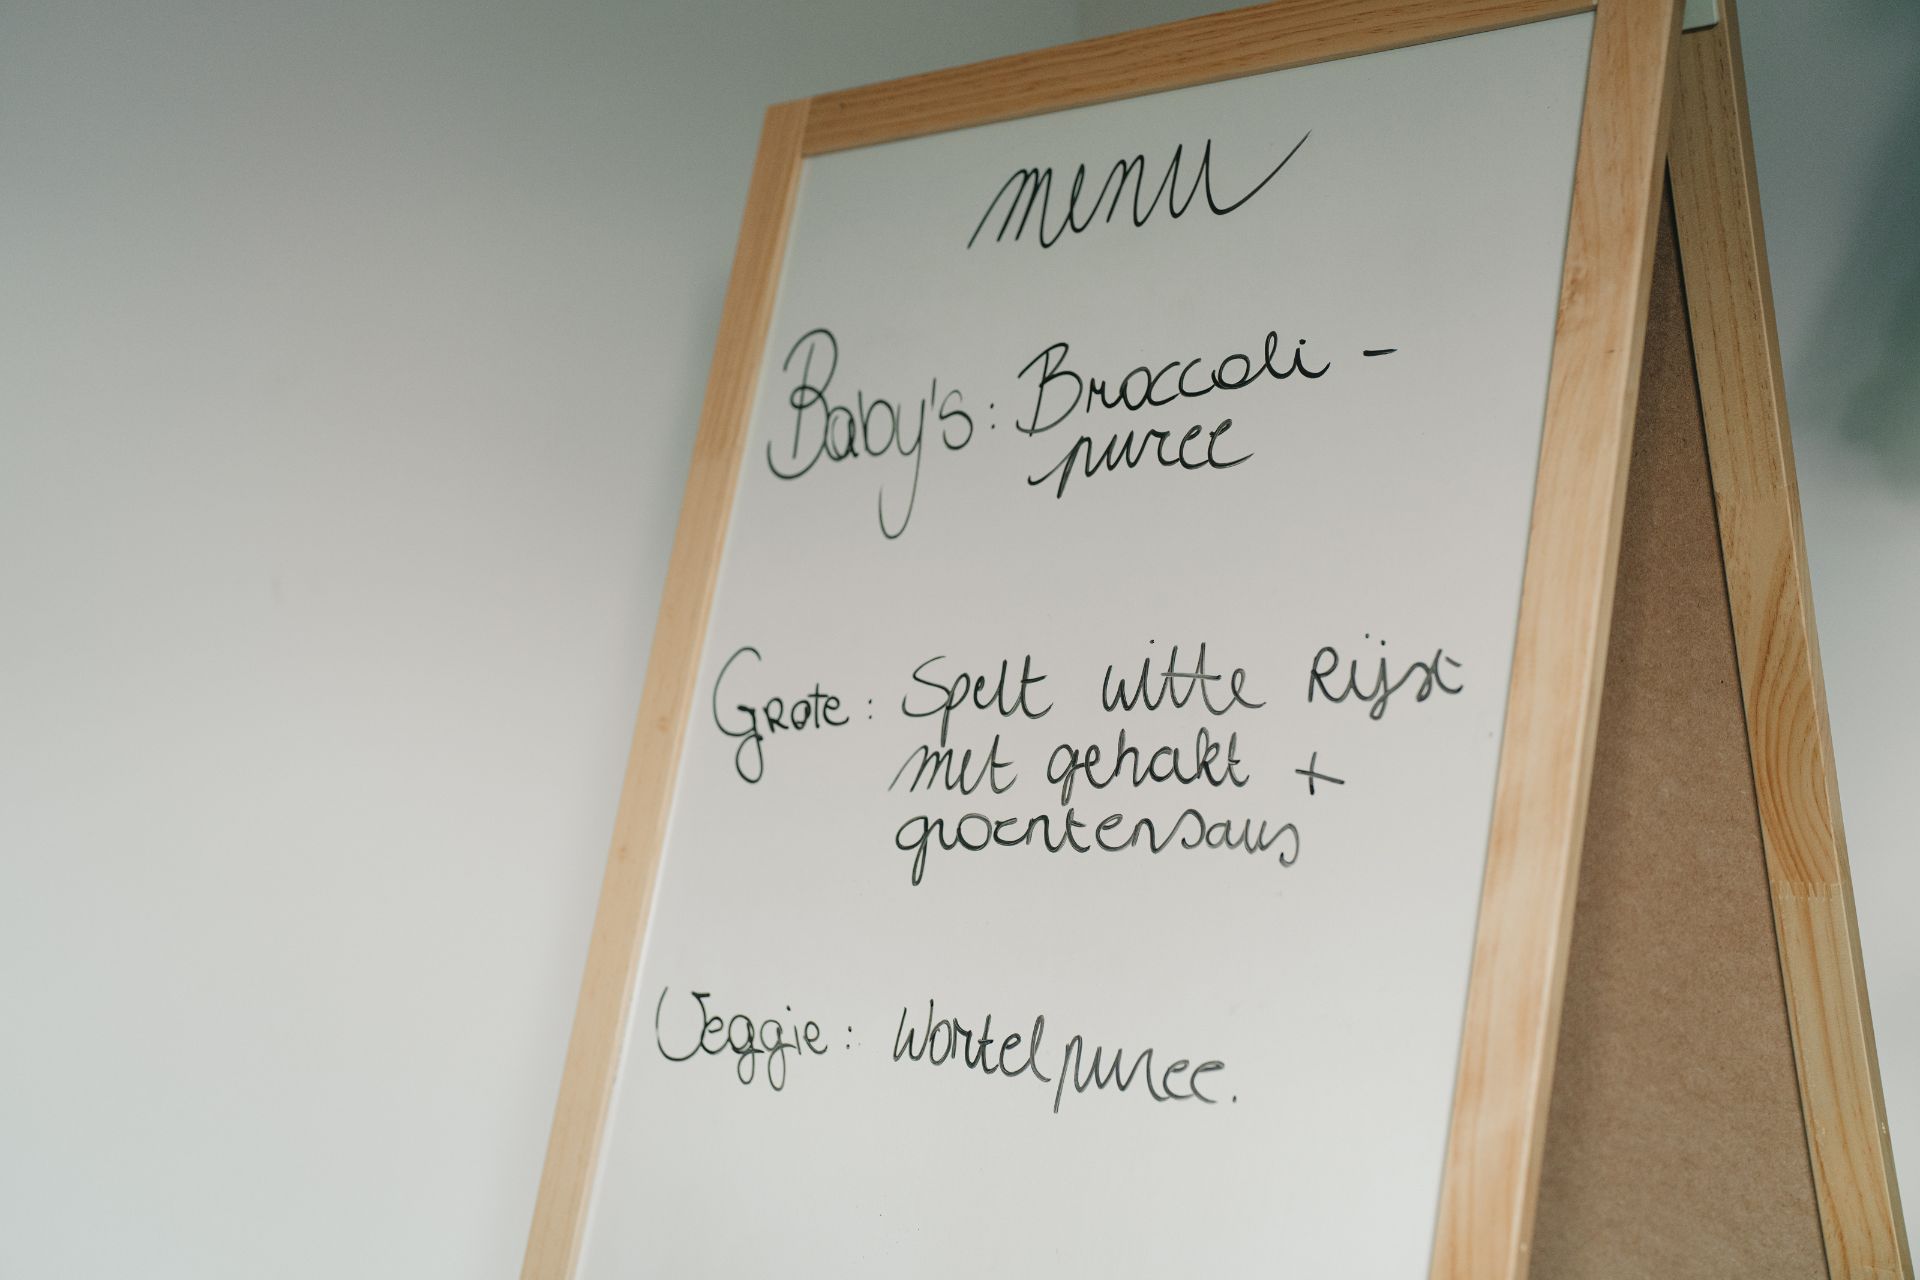 menu
Baby's: Broccoli -
puree
Grote: Spelt witte Rijst
met gehakt +
groentensaus
Veggie: Wortelpuree.